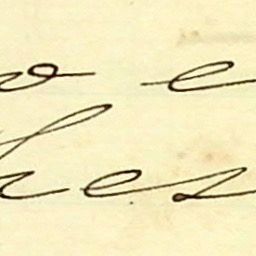 o e
hes